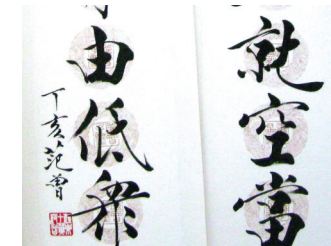 就空當
由低
丁亥 范曾